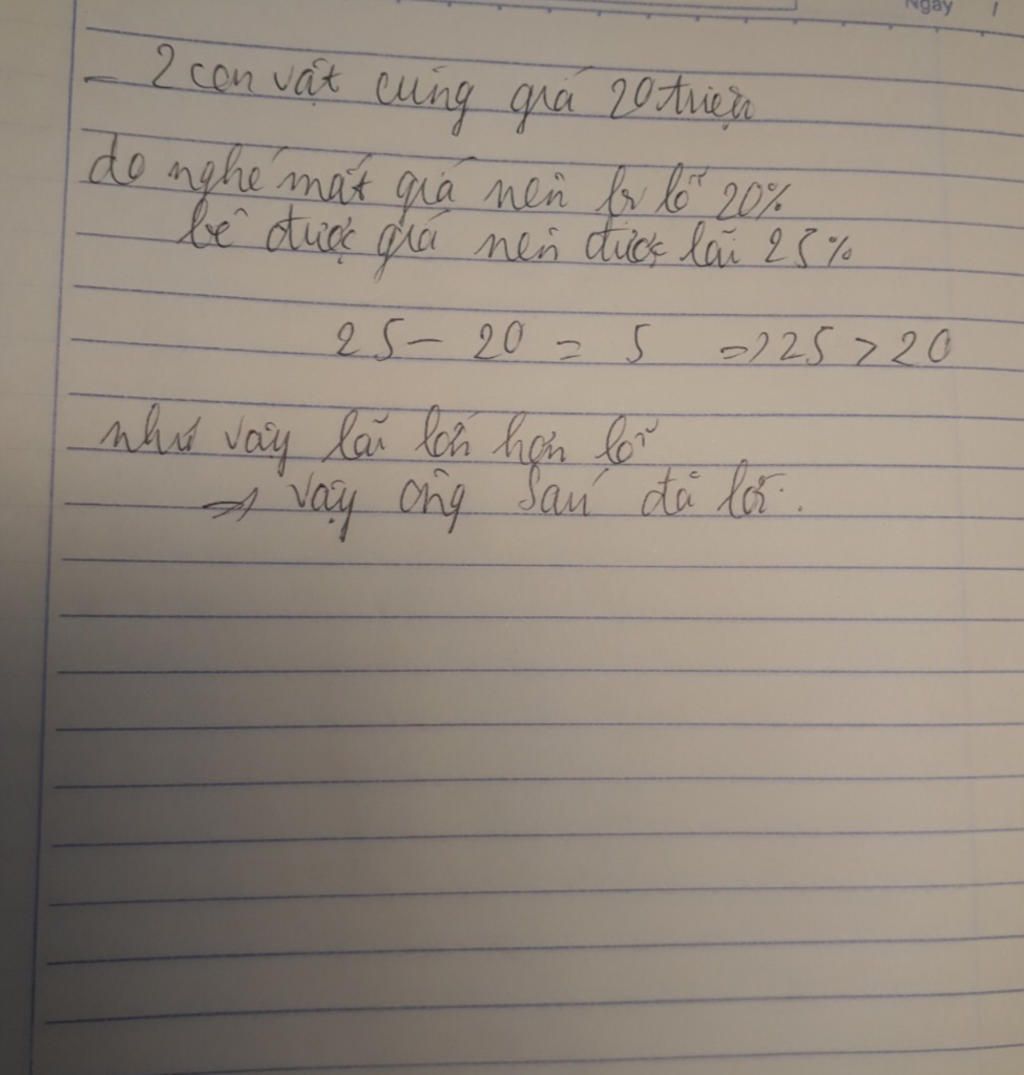 Ngày /
- 2 con vật cùng giá 20 triệu
do nghé mất giá nên bị lỗ 20%
bê được giá nên được lãi 25%
25 - 20 = 5 => 25 > 20
như vậy lãi lớn hơn lỗ
=> vậy ông sáu đã lời.